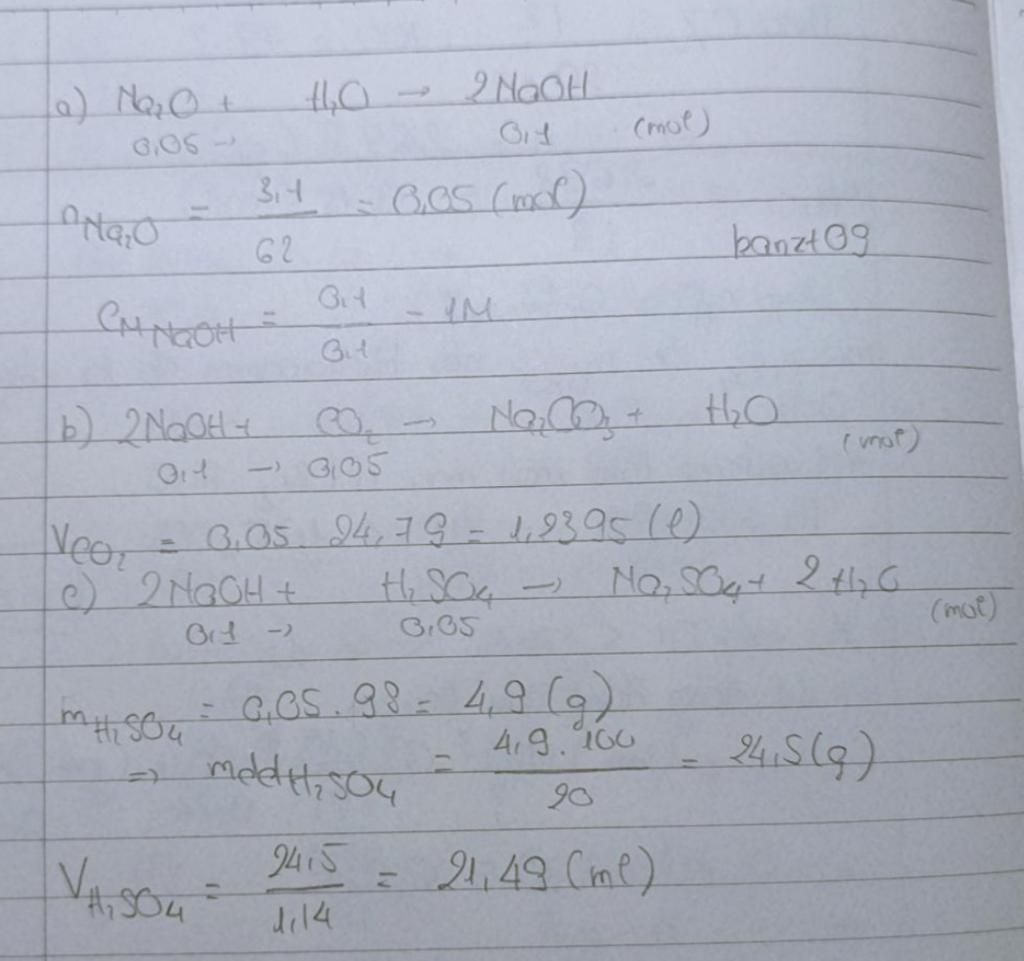 a) Na₂O + H₂O → 2NaOH
0,05 → 0,1 (mol)
nNa₂O = 3,1/62 = 0,05 (mol)
banzt09
CM NaOH = 0,1/0,1 = 1M
b) 2NaOH + CO₂ → Na₂CO₃ + H₂O
0,1 → 0,05 (mol)
VCO₂ = 0,05 . 24,79 = 1,2395 (l)
c) 2NaOH + H₂SO₄ → Na₂SO₄ + 2H₂O
0,1 → 0,05 (mol)
mH₂SO₄ = 0,05 . 98 = 4,9 (g)
=> mddH₂SO₄ = 4,9 . 100/20 = 24,5 (g)
VH₂SO₄ = 24,5/1,14 = 21,49 (ml)